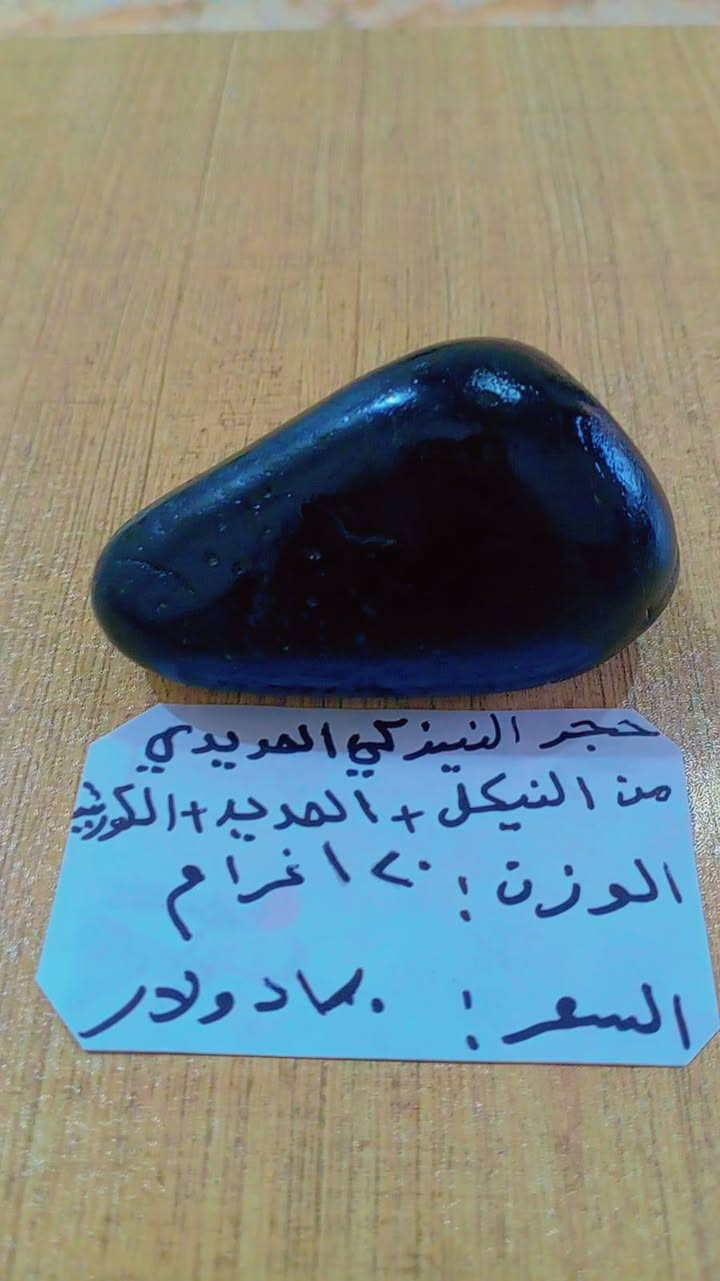 حجر النيزكي الحديدي
من النيكل + الحديد +
الوزن : ١٢٠ غرام
السعر : دولار